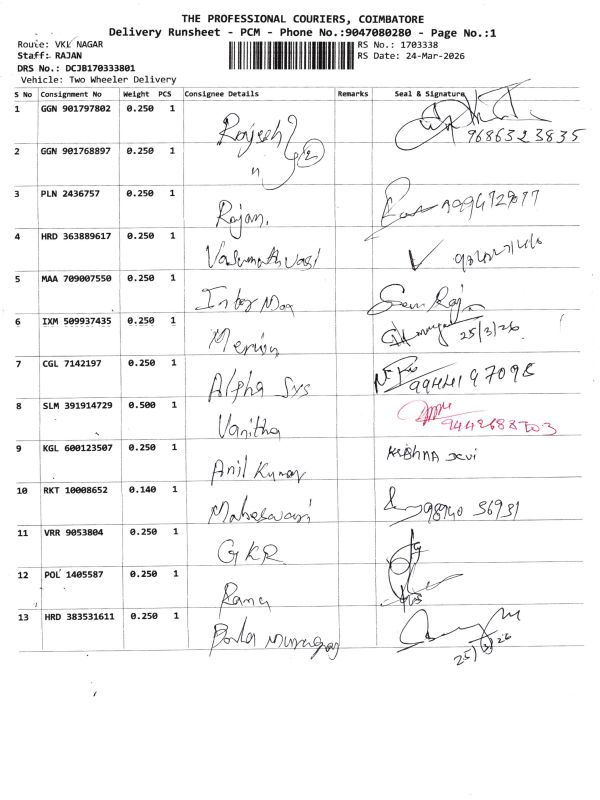 THE PROFESSIONAL COURIERS, COIMBATORE
Delivery Runsheet - PCM - Phone No.:9047080280 - Page No.:1
Route: VKL NAGAR RS No.: 1703338
Staff: RAJAN RS Date: 24-Mar-2026
DRS No.: DCJB170333801
Vehicle: Two Wheeler Delivery
S No Consignment No Weight PCS Consignee Details Remarks Seal & Signature
1 GGN 901797802 0.250 1 Rajesh 9686323835
2 GGN 901768897 0.250 1 " 2
3 PLN 2436757 0.250 1 Rajan.
4 HRD 363889617 0.250 1 ✓
5 MAA 709007550 0.250 1 Inter
6 IXM 509937435 0.250 1 25/3/26
7 CGL 7142197 0.250 1 Alpha Sys 9944197098
8 SLM 391914729 0.500 1 Vanitha
9 KGL 600123507 0.250 1 Anil Kumar KRISHNA
10 RKT 10008652 0.140 1 Maheswari 98940 56931
11 VRR 9053804 0.250 1 GKR
12 POL 1405587 0.250 1
13 HRD 383531611 0.250 1 25/3/26